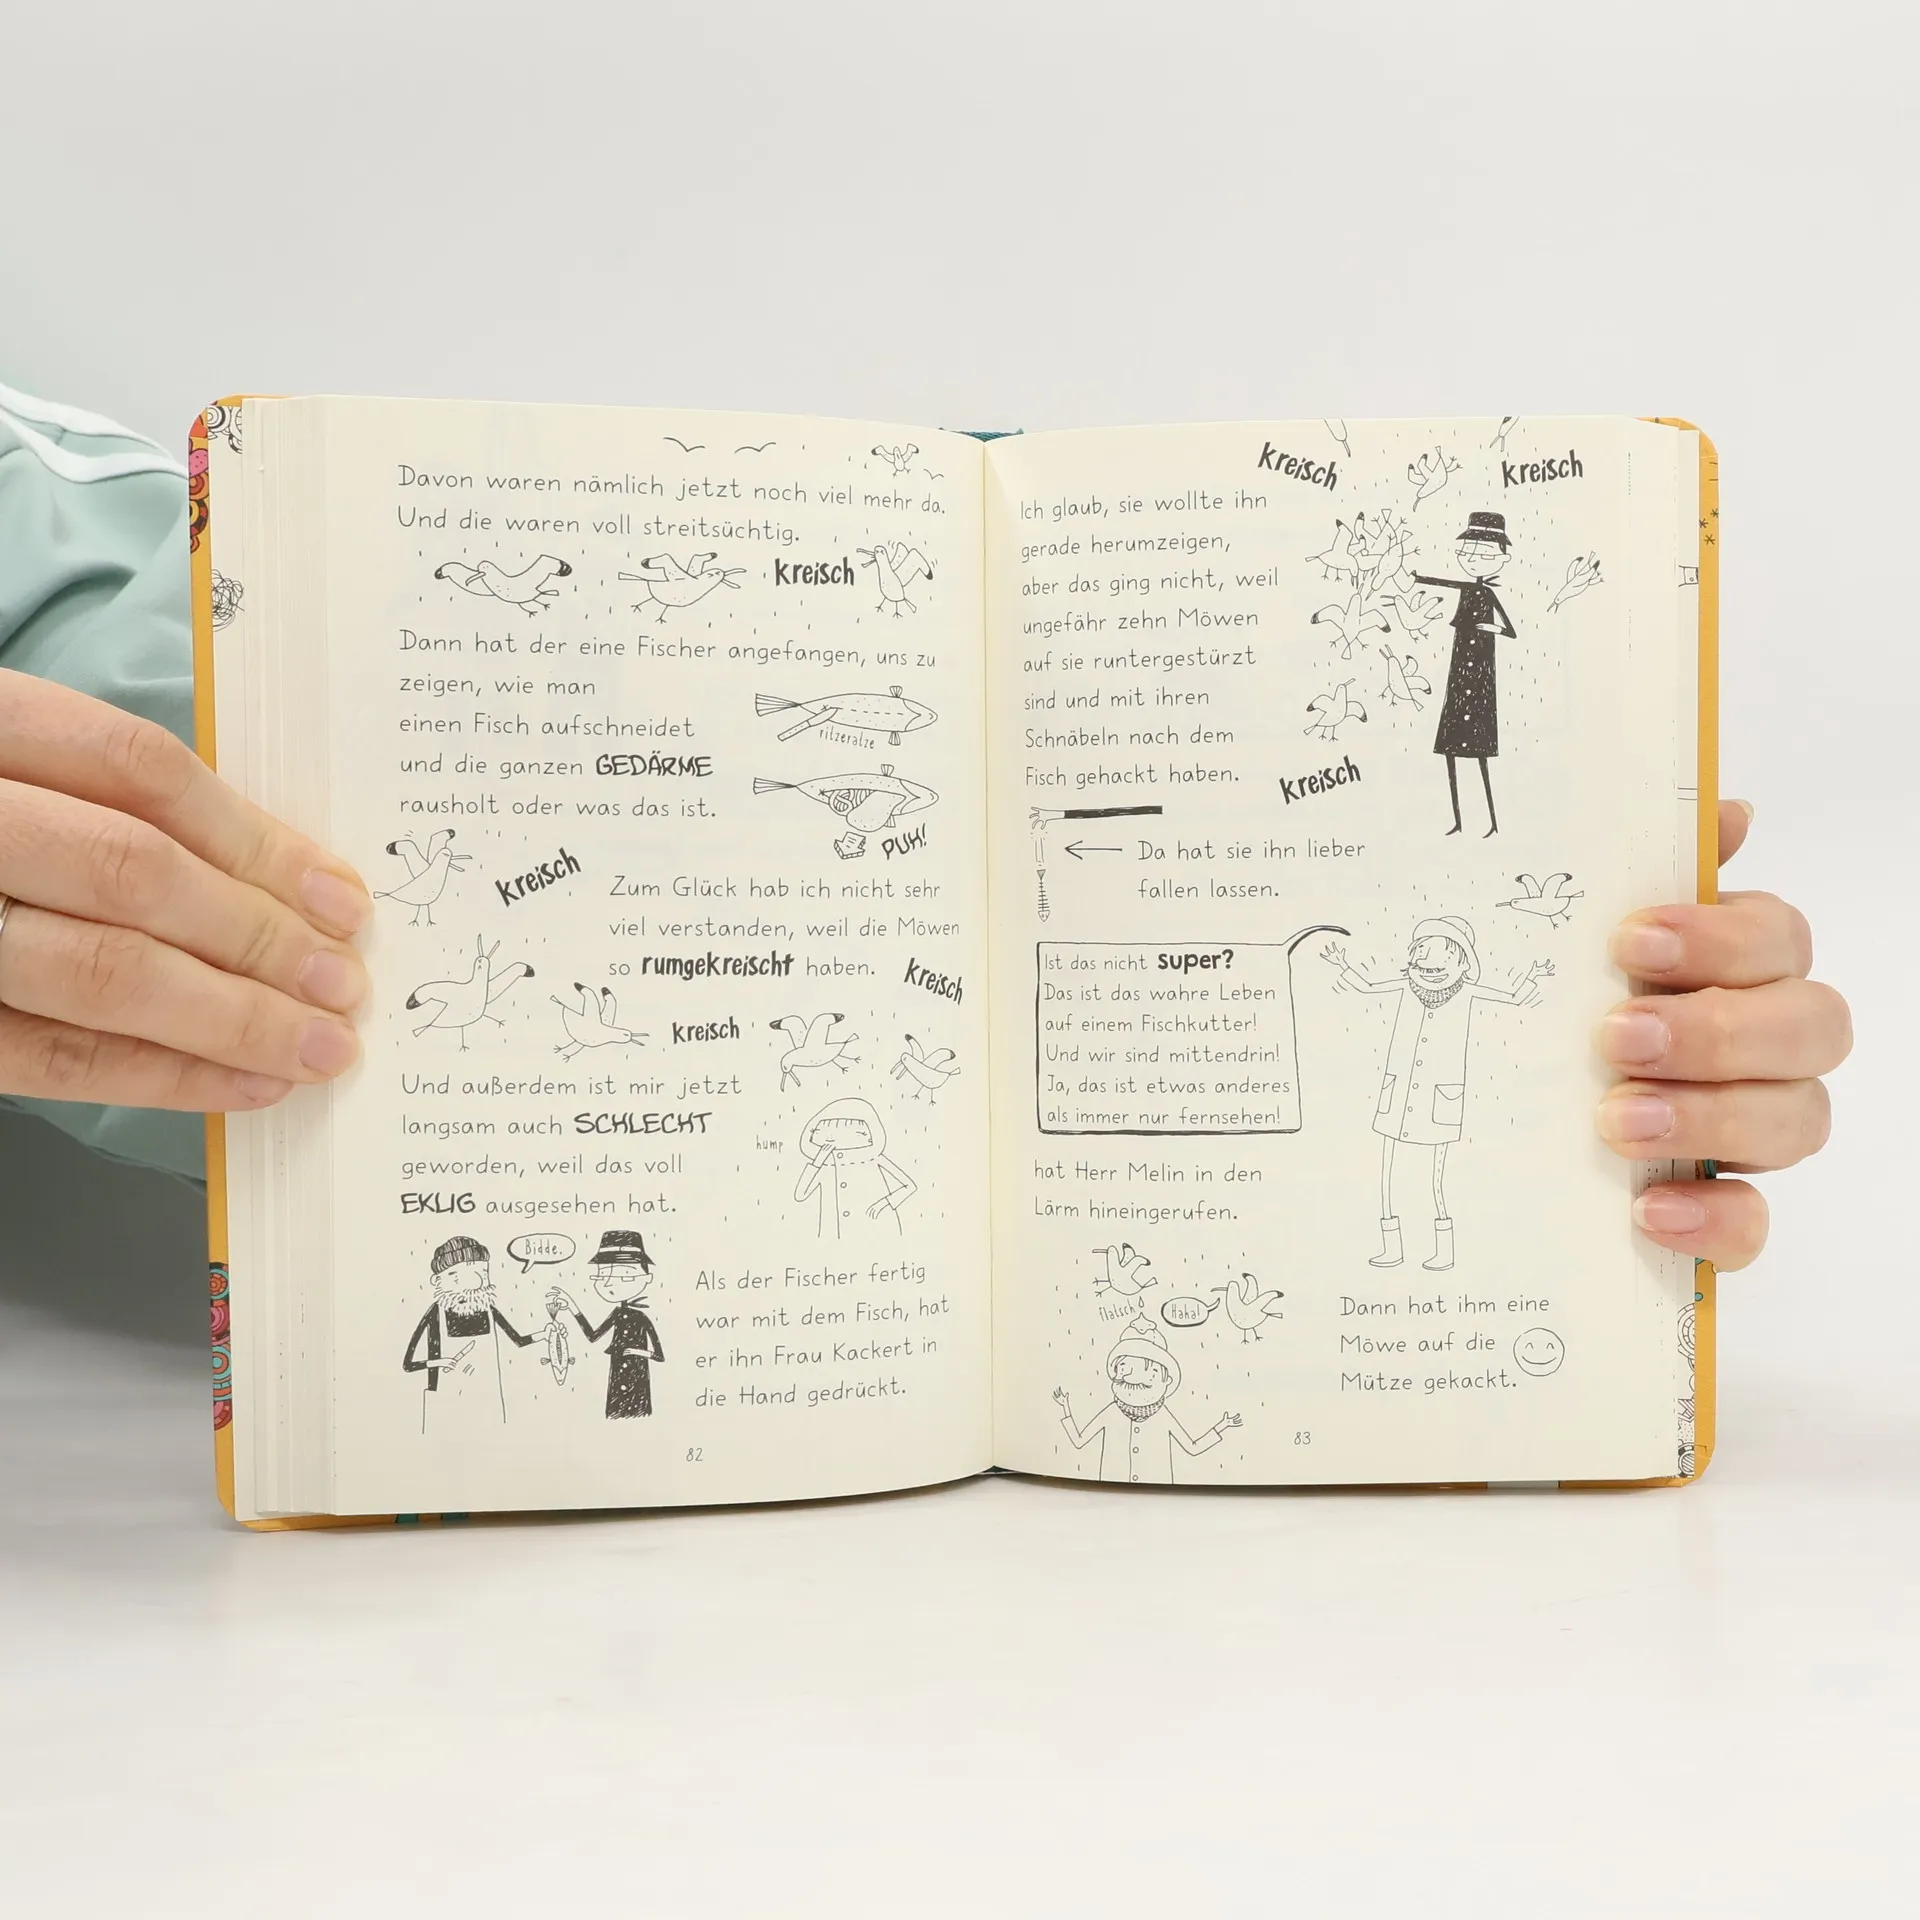 Davon waren nämlich jetzt noch viel mehr da.
Und die waren voll streitsüchtig.
kreisch
Dann hat der eine Fischer angefangen, uns zu
zeigen, wie man
einen Fisch aufschneidet
und die ganzen GEDÄRME
rausholt oder was das ist.
ritzeratze
PUH!
kreisch
Zum Glück hab ich nicht sehr
viel verstanden, weil die Möwen
so rumgekreischt haben.
kreisch
kreisch
Und außerdem ist mir jetzt
langsam auch SCHLECHT
geworden, weil das voll
EKLIG ausgesehen hat.
hump
Bidde.
Als der Fischer fertig
war mit dem Fisch, hat
er ihn Frau Kackert in
die Hand gedrückt.
82
kreisch
kreisch
Ich glaub, sie wollte ihn
gerade herumzeigen,
aber das ging nicht, weil
ungefähr zehn Möwen
auf sie runtergestürzt
sind und mit ihren
Schnäbeln nach dem
Fisch gehackt haben.
kreisch
Da hat sie ihn lieber
fallen lassen.
Ist das nicht super?
Das ist das wahre Leben
auf einem Fischkutter!
Und wir sind mittendrin!
Ja, das ist etwas anderes
als immer nur fernsehen!
hat Herr Melin in den
Lärm hineingerufen.
flatsch
Haha!
Dann hat ihm eine
Möwe auf die
Mütze gekackt.
83